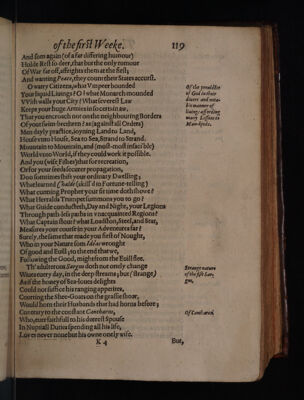 of the first Weeke.
119
And som again (of a far differing humour)
Holde Rest so deer, that but the only rumour
Of War far off, affrights them at the first;
And wanting Peace, they count their States accurst.
O watry Citizens, what Vmpeer bounded
Your liquid Liuings? O! what Monarch mounded
VVith walls your City? What seuerest Law
Keeps your huge Armies in so certain aw,
That you encroach not on the neighbouring Borders
Of your swim-brethren? as (against all Orders)
Men dayly practice, ioyning Land to Land,
House vnto House, Sea to Sea, Strand to Strand.
Mountain to Mountain, and (most-most insacible)
World vnto World, if they could work it possible.
And you (wise Fishes) that for recreation,
Or for your seeds securer propagation,
Doo somtimes shift your ordinary Dwelling;
What learned Chaldé (skill'd in Fortune-telling)
What cunning Prophet your fit time doth showe?
What Heralds Trumpet summons you to go?
What Guide conducteth, Day and Night, your Legions
Through path-less paths in vnacquainted Regions?
What Captain stout? what Loadston, Steel, and Star,
Measures your course in your Aduentures far?
Surely, the same that made you first of Nought,
Who in your Nature som Idéas wrought
Of good and Euill; to the end that we,
Following the Good, might from the Euill flee.
Th' adulterous Sargus doth not onely change
Wiues euery day, in the deep streams; but (strange)
As if the honey of Sea-loues delights
Could not suffice his ranging appetites,
Courting the Shee-Goats on the grassie shoar,
Would horn their Husbands that had horns before;
Contrary to the constant Cantharus,
Who, euer faithfull to his deerest Spouse
In Nuptiall Duties spending all his life,
Loues neuer none but his owne onely wife.
K 4
But,
Of the prouidēce of God in their diuers and notable manner of liuing: affording many Lessons to Mankynde.
Strange nature of the fish Sargus,
Of Cantharus.